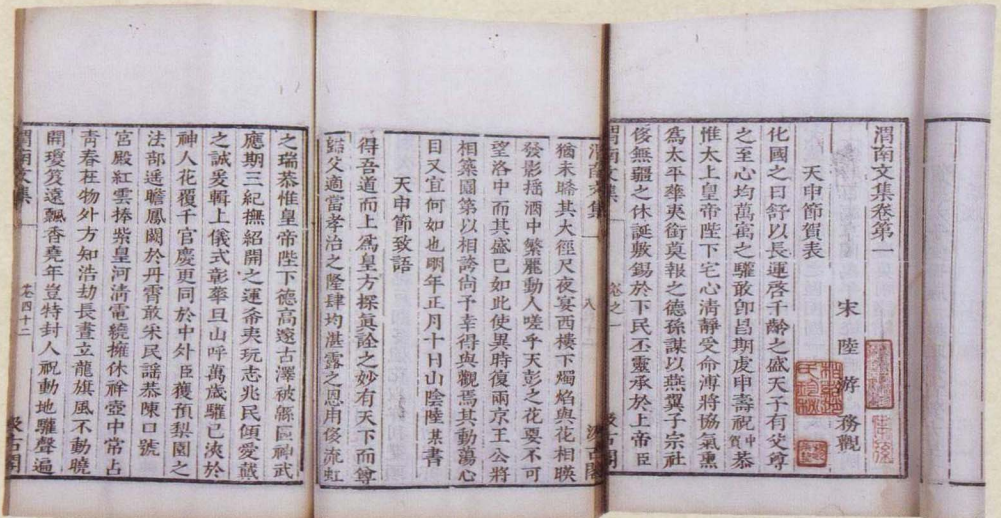 渭南文集卷第一
宋 陸 游 務觀
天申節賀表
化國之日舒以長運啓千齡之盛天子有父尊
之至心均萬寓之驩敢卽昌期虔申壽祝中賀恭
惟太上皇帝陛下宅心淸靜受命溥將協氣熏
爲太平華夷銜莫報之德孫謀以燕翼子宗社
後無疆之休誕敷錫於下民丕靈承於上帝臣
渭南文集 卷之一 汲古閣
渭南文集 汲古閣
猶未晞其大徑尺夜宴西樓下燭焰與花相暎
發影搖酒中繁麗動人嗟乎天彭之花要不可
望洛中而其盛已如此使異時復兩京王公將
相築園第以相誇尙予幸得與觀焉其動蕩心
目又宜何如也明年正月十日山陰陸某書
天申節致語
得吾道而上爲皇方探眞詮之妙有天下而尊
父適當孝治之隆肆均湛露之恩用俊流虹
之瑞恭惟皇帝陛下德高邃古澤被緜區神武
應期三紀撫紹開之運夷玩志兆民傾愛戴
之誠爰輯上儀式彰華旦山呼萬歲驩已浹於
神人花覆千官慶更同於中外臣獲預梨園之
法部遥瞻鳳闕於丹霄敢采民謡恭陳口號
宮殿紅雲捧紫皇河淸電繞擁休祥壺中常占
靑春在物外方知浩劫長晝立龍旗風不動曉
開瓊笈遠飄香堯年豈特封人祝動地驩聲遍
渭南文集 卷四十二 汲古閣